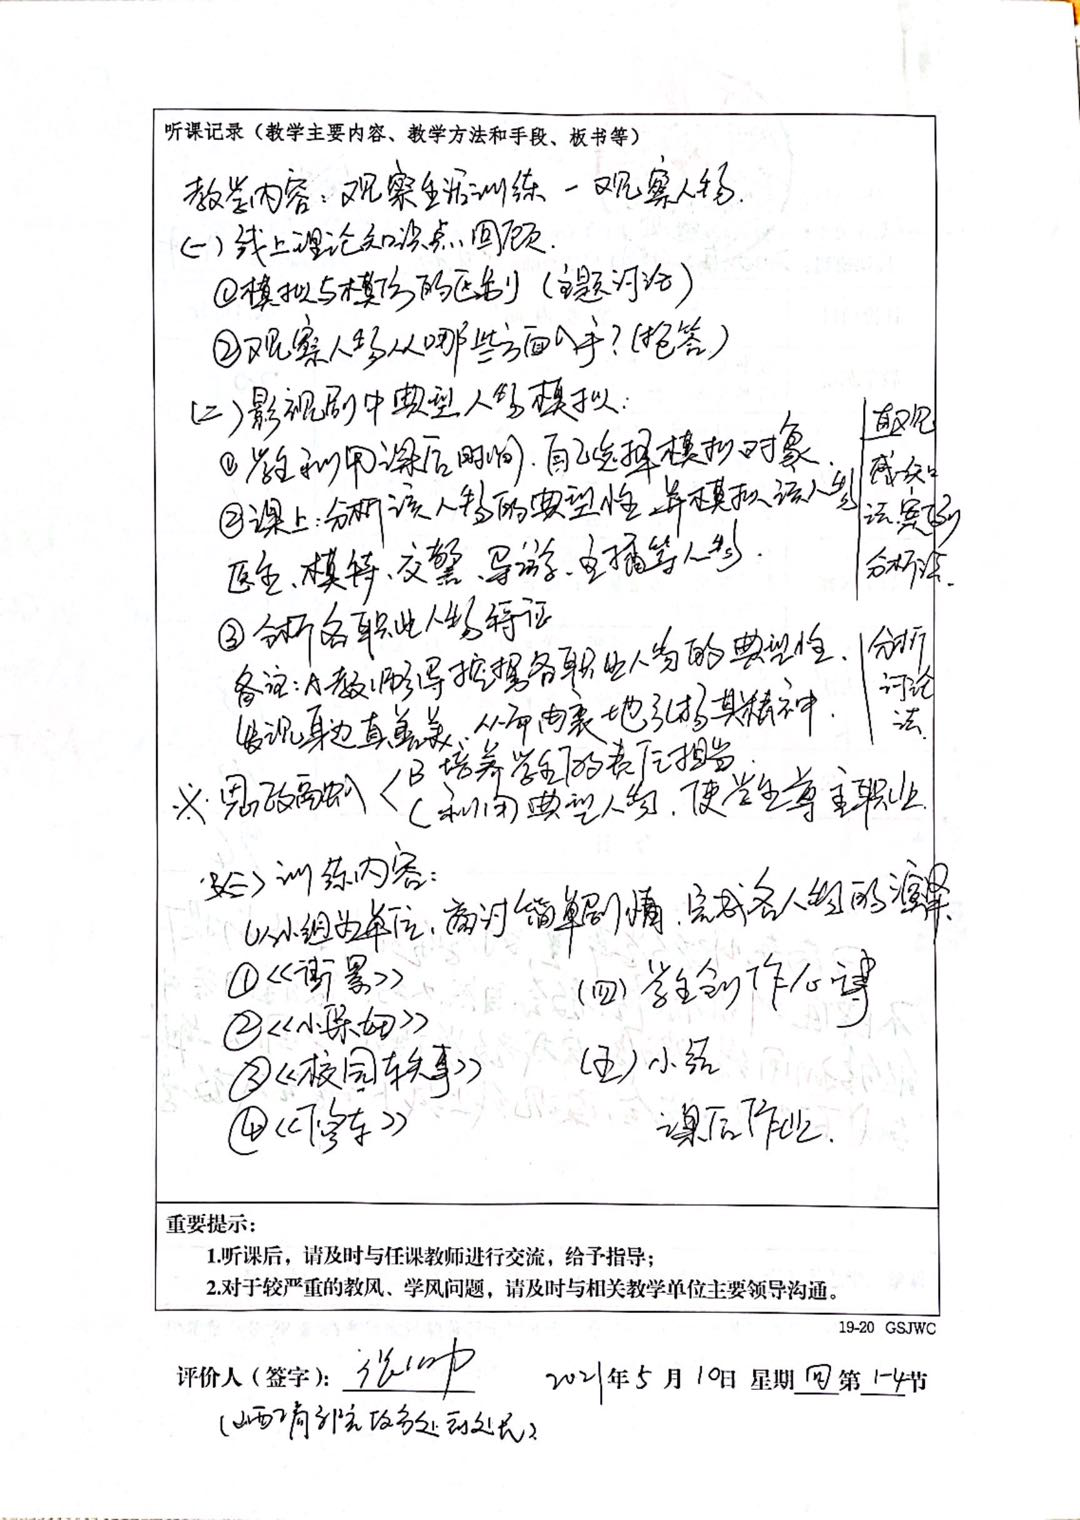 听课记录（教学主要内容、教学方法和手段、板书等）
教学内容：观察生活训练 — 观察人物.
(一) 线上理论知识点回顾.
①模拟与模仿的区别（主题讨论）
②观察人物从哪些方面入手？(抢答)
(二) 影视剧中典型人物模拟：
① 学生利用课后时间、自己选择模拟对象.
②课上：分析该人物的典型性并模拟该人物
医生、模特、交警、导游、主播等人物.
③ 分析各职业人物特征
直观
感知
法、案例
分析法.
备注：A教师引导挖掘各职业人物的典型性、
发现身边真善美、从而由衷地弘扬其精神.
分析
讨论
法
※. 思政融入 < B 培养学生的责任担当.
C 利用典型人物、使学生尊重职业.
(三) 训练内容：
以小组为单位、商讨简单剧情、完成各人物的演绎.
①《街景》
②《小保姆》
③《校园轶事》
④《修车》
(四) 学生创作心得
(五) 小结
课后作业.
重要提示：
1.听课后，请及时与任课教师进行交流，给予指导；
2.对于较严重的教风、学风问题，请及时与相关教学单位主要领导沟通。
19-20 GSJWC
评价人（签字）：
2021年 5 月 10日 星期 四 第 1-4节